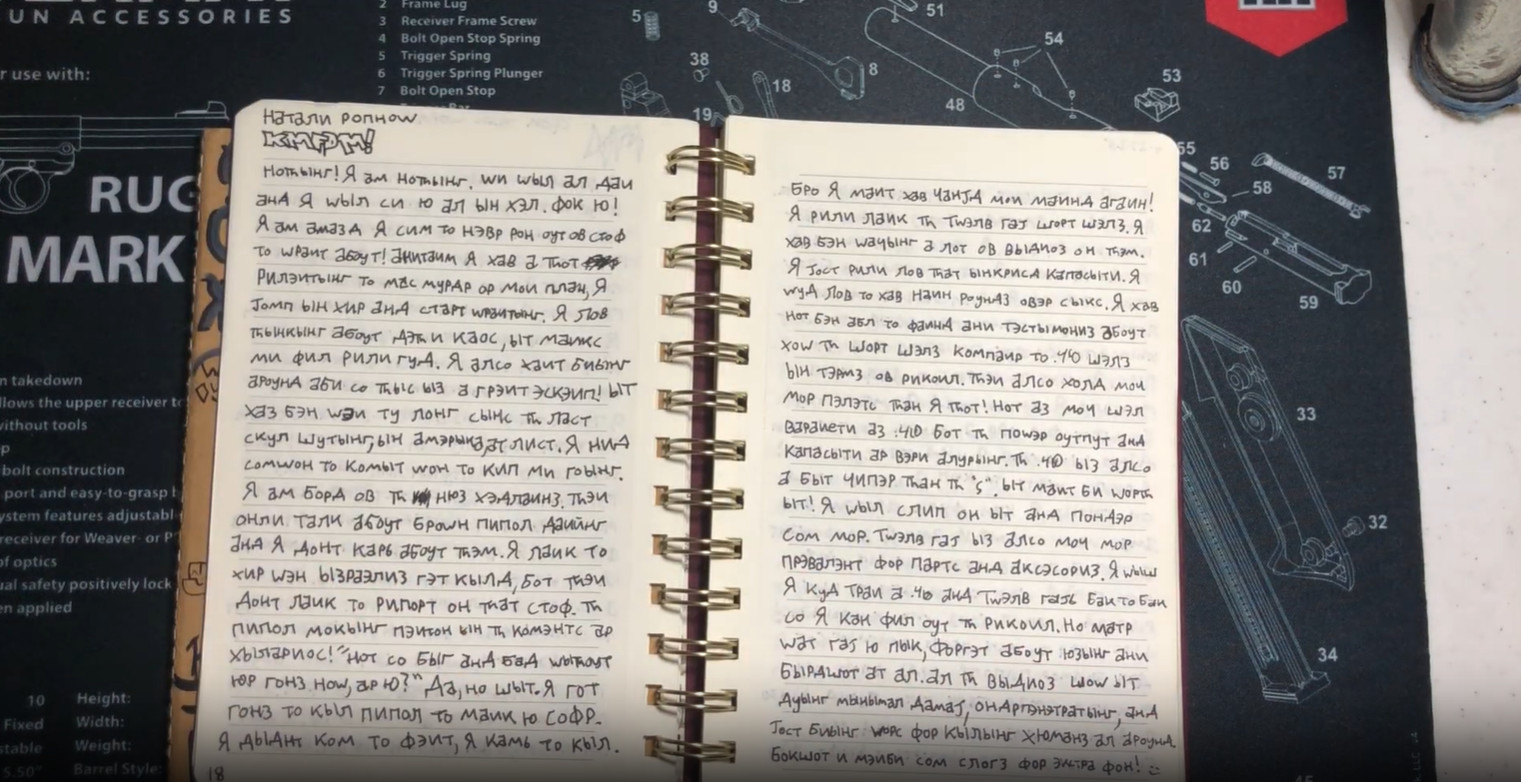 UN ACCESSORIES
r use with:
RUG
MARK
2 Frame Lug
3 Receiver Frame Screw
4 Bolt Open Stop Spring
5 Trigger Spring
6 Trigger Spring Plunger
7 Bolt Open Stop
n takedown
llows the upper receiver to
without tools
bolt construction
port and easy-to-grasp
ystem features adjustabl
receiver for Weaver- or P
of optics
ual safety positively lock
en applied
10 Height:
Fixed Width:
stable Weight:
5.50" Barrel Style:
Натали Ропноw
КМФДМ!
Нотһынг! Я ам нотһынг. wи wыл ал дай
анд Я wыл си ю ал ын хэл. фок ю!
Я ам амазд Я сим то нэвр рон оут ов стоф
то wраит абоут! анитаим Я хав а тһот
рилэитынг то мас мурдр ор мои план, Я
Jомп ын хир анд старт wраитынг. Я лов
тһынкынг абоут дэтһ и каос, ыт маикс
ми фил рили гуд. Я алсо хаит биынг
ароунд аби со тһыс ыз а грэит эскэип! ыт
хаз бэн wэи ту лонг сынс тһ ласт
скул шутынг, ын амэрыка, ат лист. Я нид
сомwон то комыт wон то кип ми гоынг.
Я ам борд ов тһ нюз хэдлаинз. тһэи
онли талк абоут броwн пипол даиынг
анд Я донт карь абоут тһэм. Я лаик то
хир wэн ызраэлиз гэт кылд, бот тһэи
донт лаик то рипорт он тһат стоф. Тһ
пипол мокынг пэитон ын тһ комэнтс ар
хылариос! "нот со быг анд бад wытһоут
юр гонз ноw, ар ю?" Да, но шыт. Я гот
гонз то кыл пипол то маик ю софр.
Я дыднт ком то фэит, Я камь то кыл.
18
Бро Я маит хав чанJд мои маинд агаин!
Я рили лаик тһ тwэлв гаJ шорт шэлз. Я
хав бэн wачынг а лот ов выдиоз он тһэм.
Я Jост рили лов тһат ынкрисд капасыти. Я
wуд лов то хав наин роундз овэр сыкс. Я хав
нот бэн абл то фаинд ани тэстымониз абоут
хоw тһ шорт шэлз компаир то .410 шэлз
ын тэрмз ов рикоил. Тһэи алсо холд моч
мор пэлэтс тһан Я тһот! Нот аз моч шэл
вараиети аз .410 бот тһ поwэр оутпут анд
капасыти ар вэри алурынг. Тһ .410 ыз алсо
а быт чипэр тһан тһ "s". ыт маит би wортһ
ыт! Я wыл слип он ыт анд пондэр
сом мор. Тwэлв гаJ ыз алсо моч мор
прэвалэнт фор партс анд аксэсориз. Я wыш
Я куд траи а .410 анд тwэлв гаJ бак то бак
со Я кан фил оут тһ рикоил. Но матр
wат гаJ ю пык, форгэт абоут юзынг ани
бырдшот ат ал. ал тһ выдиоз шоw ыт
дуынг мынымал дамаJ, ондрпэнэтратынг, анд
Jост биынг wорс фор кылынг хюманз ал ароунд.
Бокшот и мэиби сом слогз фор экстра фон!
5
9
51
54
38
8
18
48
53
19
55
56
57
58
62
61
60
59
33
32
34